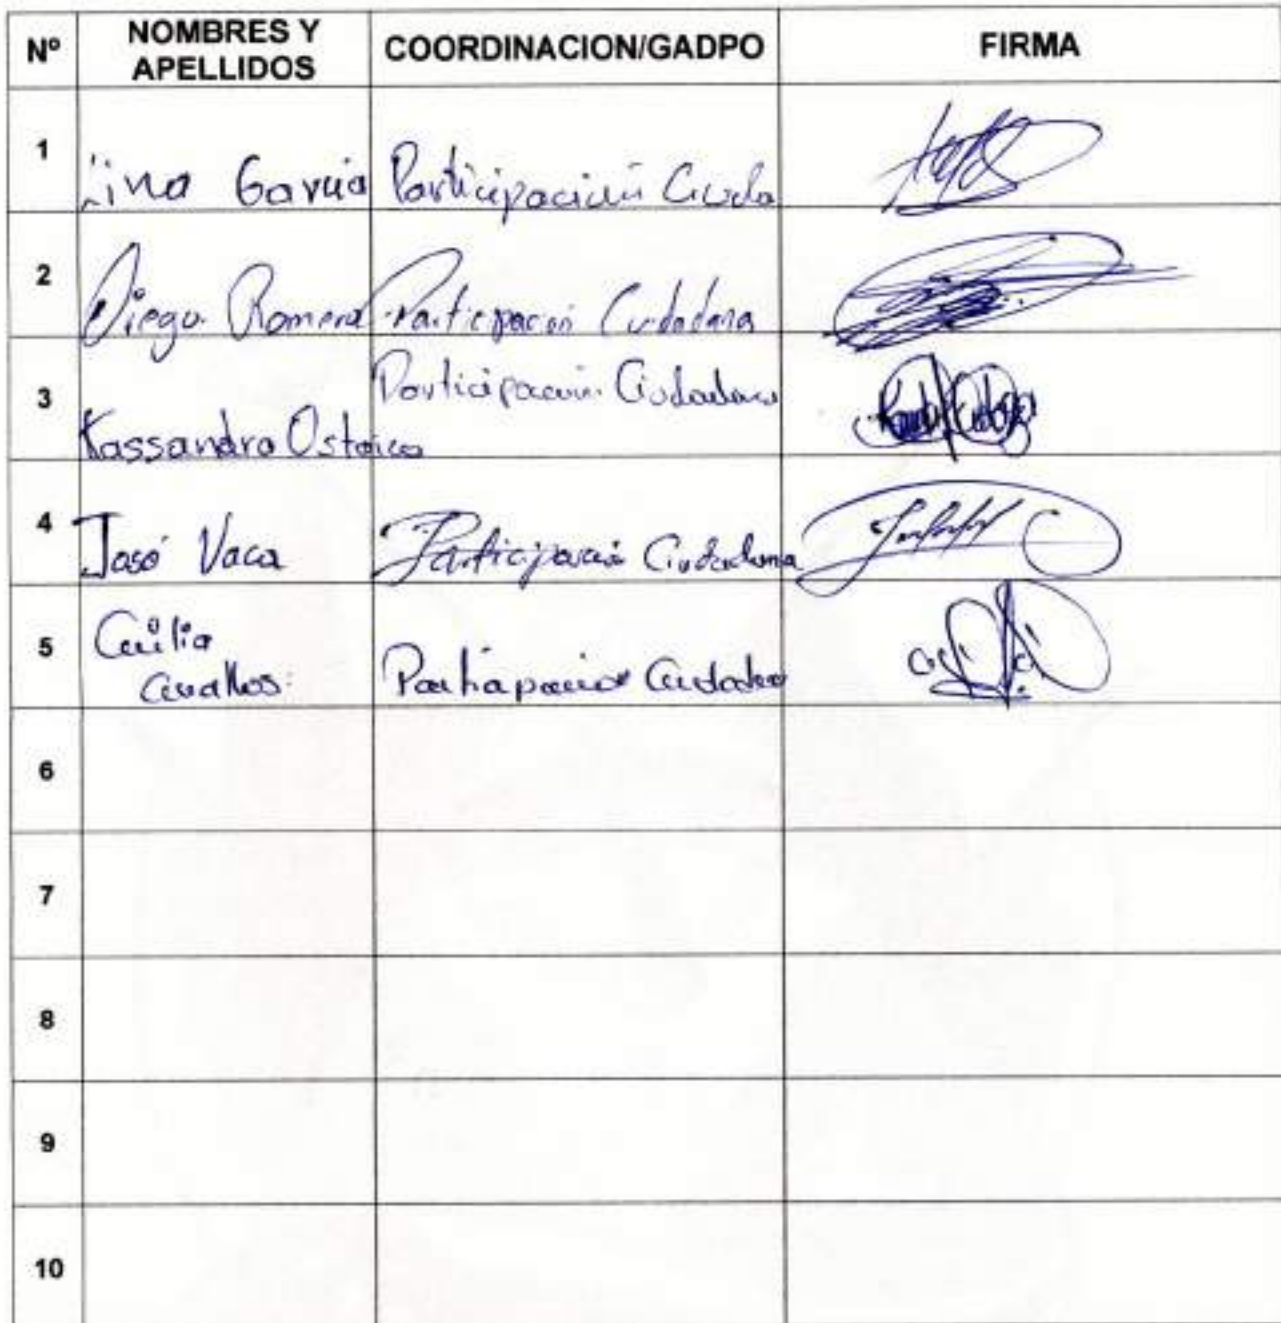 Nº NOMBRES Y APELLIDOS COORDINACION/GADPO FIRMA
1 García Participación Ciuda
2 Diego Romero Participación Ciudadana
3 Kassandra Participación Ciudadana
4 José Vaca Participación Ciudadana
5 Cecilia
Cevallos Participación Ciudadana
6
7
8
9
10